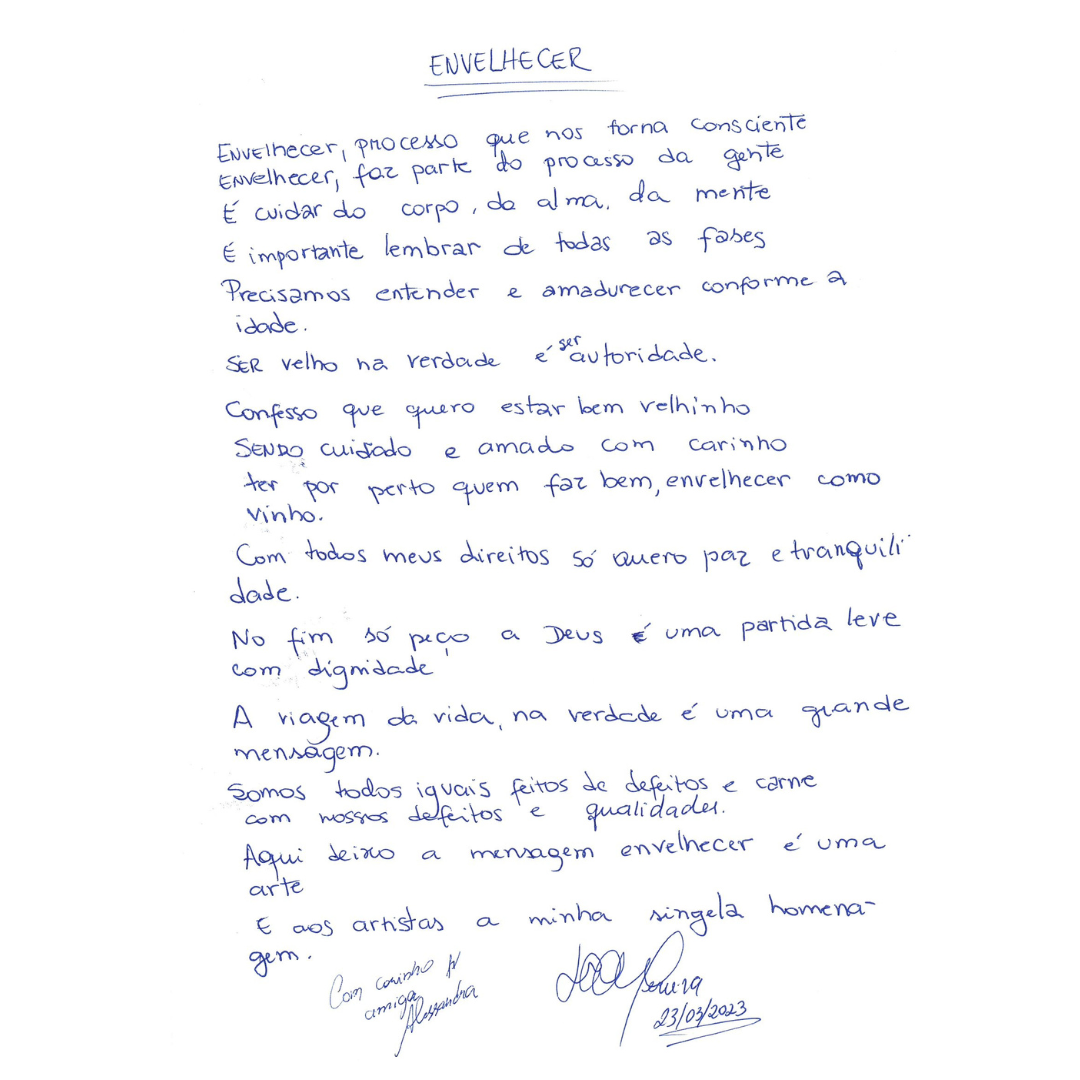 ENVELHECER
Envelhecer, processo que nos torna consciente
Envelhecer, faz parte do processo da gente
É cuidar do corpo, da alma, da mente
É importante lembrar de todas as fases
Precisamos entender e amadurecer conforme a
idade.
SER velho na verdade é ser autoridade.
Confesso que quero estar bem velhinho
SENDO cuidado e amado com carinho
ter por perto quem faz bem, envelhecer como
vinho.
Com todos meus direitos só quero paz e tranquili
dade.
No fim só peço a Deus é uma partida leve
com dignidade
A viagem da vida, na verdade é uma grande
mensagem.
Somos todos iguais feitos de defeitos e carne
com nossos defeitos e qualidades.
Aqui deixo a mensagem envelhecer é uma
arte
E aos artistas a minha singela homena-
gem.
Com carinho p/
amiga
Alessandra
23/03/2023